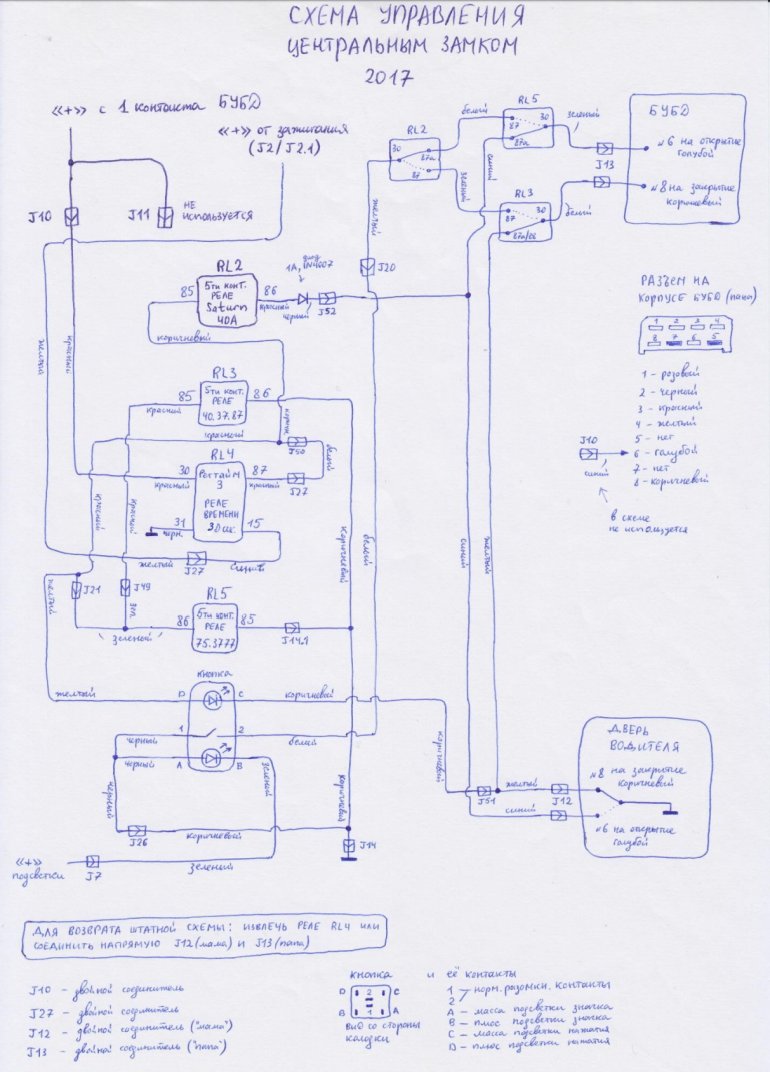 СХЕМА УПРАВЛЕНИЯ
ЦЕНТРАЛЬНЫМ ЗАМКОМ
2017
«+» с 1 контакта БУБД
«+» от зажигания
(J2/J2.1)
J10
J11
НЕ
ИСПОЛЬЗУЕТСЯ
RL2
30
87а
87
белый
зеленый
RL5
87
30
87а
зеленый
синий
J13
БУБД
№6 на открытие
голубой
№8 на закрытие
коричневый
RL3
87
30
белый
желтый
J20
RL2
85
5ти конт.
РЕЛЕ
Saturn
40А
86
красный
диод
1А, IN4007
черный
J52
коричневый
желтый
красный
РАЗЪЕМ НА
КОРПУСЕ БУБД (папа)
1 2 3 4
8 7 6 5
1 - розовый
2 - черный
3 - красный
4 - желтый
5 - нет
6 - голубой
7 - нет
8 - коричневый
J10
синий
в схеме
не используется
RL3
85
5ти конт.
РЕЛЕ
40.37.87
86
красный
красный
коричн.
J50
белый
RL4
30
красный
87
красный
J27
РЕЛЕ
ВРЕМЕНИ
31
черн.
15
желтый
J27
синий
красный
красный
коричневый
белый
синий
желтый
желтый
J21
J49
зел.
(зеленый)
RL5
86
5ти конт.
РЕЛЕ
75.3777
85
J14.1
кнопка
желтый
D
C
коричневый
1
2
черный
белый
черный
A
B
зеленый
черный
J26
коричневый
коричневый
J14
«+»
подсветки
J7
зеленый
коричневый
J51
желтый
J12
синий
ДВЕРЬ
ВОДИТЕЛЯ
№8 на закрытие
коричневый
№6 на открытие
голубой
ДЛЯ ВОЗВРАТА ШТАТНОЙ СХЕМЫ: ИЗВЛЕЧЬ РЕЛЕ RL4 ИЛИ
СОЕДИНИТЬ НАПРЯМУЮ J12(мама) И J13(папа)
J10 - двойной соединитель
J27 - двойной соединитель
J12 - двойной соединитель ("мама")
J13 - двойной соединитель ("папа")
КНОПКА и её контакты
D 2 C
B 1 A
ВИД СО СТОРОНЫ
КОЛОДКИ
1
2
норм. разомкн. контакты
A - масса подсветки значка
B - плюс подсветки значка
C - масса подсветки нажатия
D - плюс подсветки нажатия